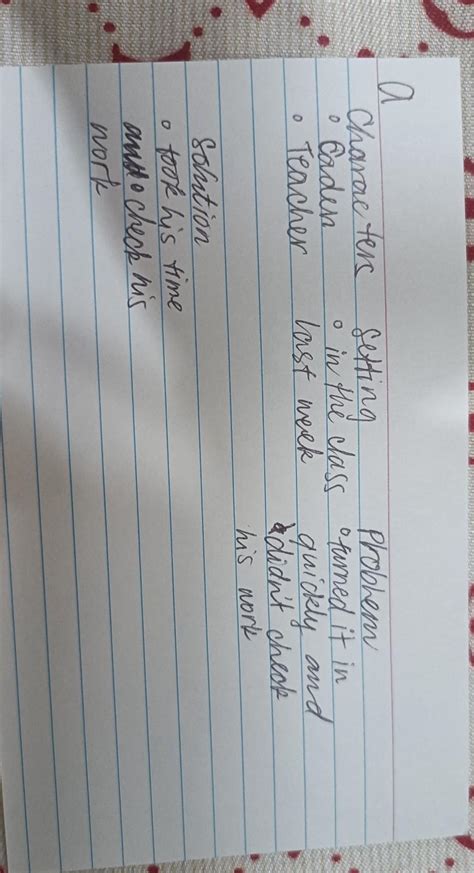 a
Characters Setting Problem
◦ Caden ◦ in the class ◦ turned it in
◦ Teacher last week quickly and
didn't check
his work
Solution
◦ took his time
◦ check his
work